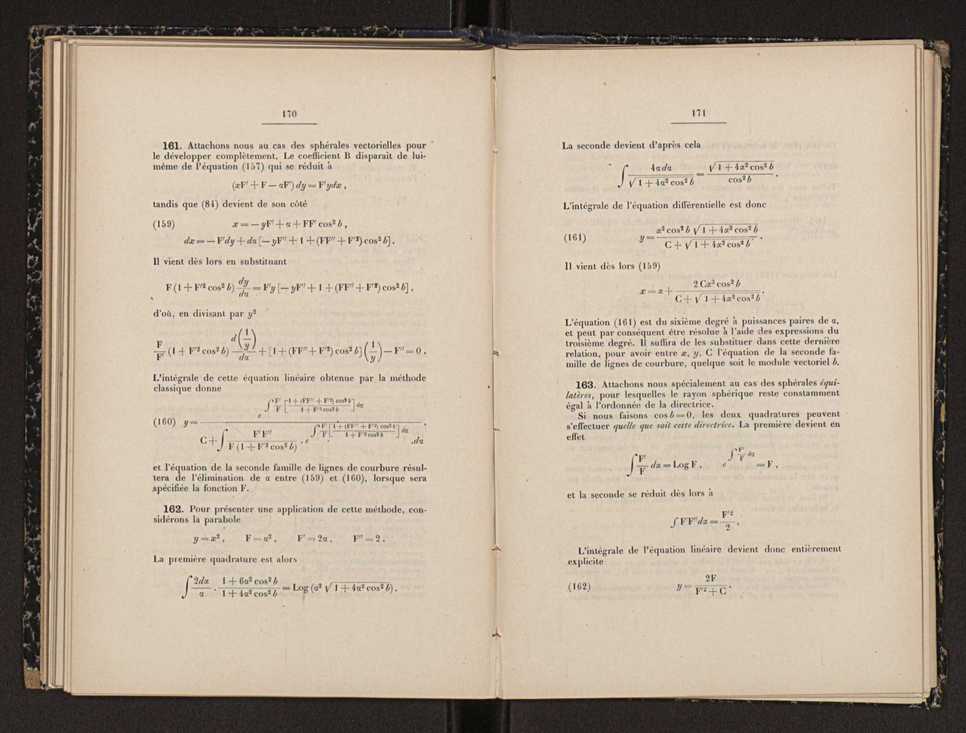 170
161. Attachons nous au cas des sphérales vectorielles pour
le développer complètement. Le coefficient B disparait de lui-
même de l'équation (157) qui se réduit à
(xF' + F — aF') dy = F'ydx ,
tandis que (84) devient de son côté
(159) x = — yF' + a + FF' cos² b ,
dx = — F'dy + da [— yF'' + 1 + (FF'' + F'²) cos² b] .
Il vient dès lors en substituant
F (1 + F'² cos² b) dy/da = F'y [— yF'' + 1 + (FF'' + F'²) cos² b] ,
d'où, en divisant par y²
F/F' (1 + F'² cos² b) d(1/y)/da + [1 + (FF'' + F'²) cos² b] (1/y) — F'' = 0 .
L'intégrale de cette équation linéaire obtenue par la méthode
classique donne
(160) y = e^{∫ F'/F [1 + (FF'' + F'²) cos² b / 1 + F'² cos² b] da} / C + ∫ F'F'' / F (1 + F'² cos² b) . e^{∫ F'/F [1 + (FF'' + F'²) cos² b / 1 + F'² cos² b] da} . da .
et l'équation de la seconde famille de lignes de courbure résul-
tera de l'élimination de a entre (159) et (160), lorsque sera
spécifiée la fonction F.
162. Pour présenter une application de cette méthode, con-
sidérons la parabole
y = x² , F = a² , F' = 2a , F'' = 2 .
La première quadrature est alors
∫ 2da/a . 1 + 6a² cos² b / 1 + 4a² cos² b = Log (a² √ 1 + 4a² cos² b) .
171
La seconde devient d'après cela
∫ 4a da / √ 1 + 4a² cos² b = √ 1 + 4a² cos² b / cos² b .
L'intégrale de l'équation différentielle est donc
(161) y = a² cos² b √ 1 + 4a² cos² b / C + √ 1 + 4a² cos² b .
Il vient dès lors (159)
x = a + 2 Ca³ cos² b / C + √ 1 + 4a² cos² b .
L'équation (161) est du sixième degré à puissances paires de a,
et peut par conséquent être résolue à l'aide des expressions du
troisième degré. Il suffira de les substituer dans cette dernière
relation, pour avoir entre x, y, C l'équation de la seconde fa-
mille de lignes de courbure, quelque soit le module vectoriel b.
163. Attachons nous spécialement au cas des sphérales équi-
latères, pour lesquelles le rayon sphérique reste constamment
égal à l'ordonnée de la directrice.
Si nous faisons cos b = 0, les deux quadratures peuvent
s'effectuer quelle que soit cette directrice. La première devient en
effet
∫ F'/F da = Log F , e^{∫ F'/F da} = F ,
et la seconde se réduit dès lors à
∫ F'F'' da = F'²/2 .
L'intégrale de l'équation linéaire devient donc entièrement
explicite
(162) y = 2F / F'² + C .